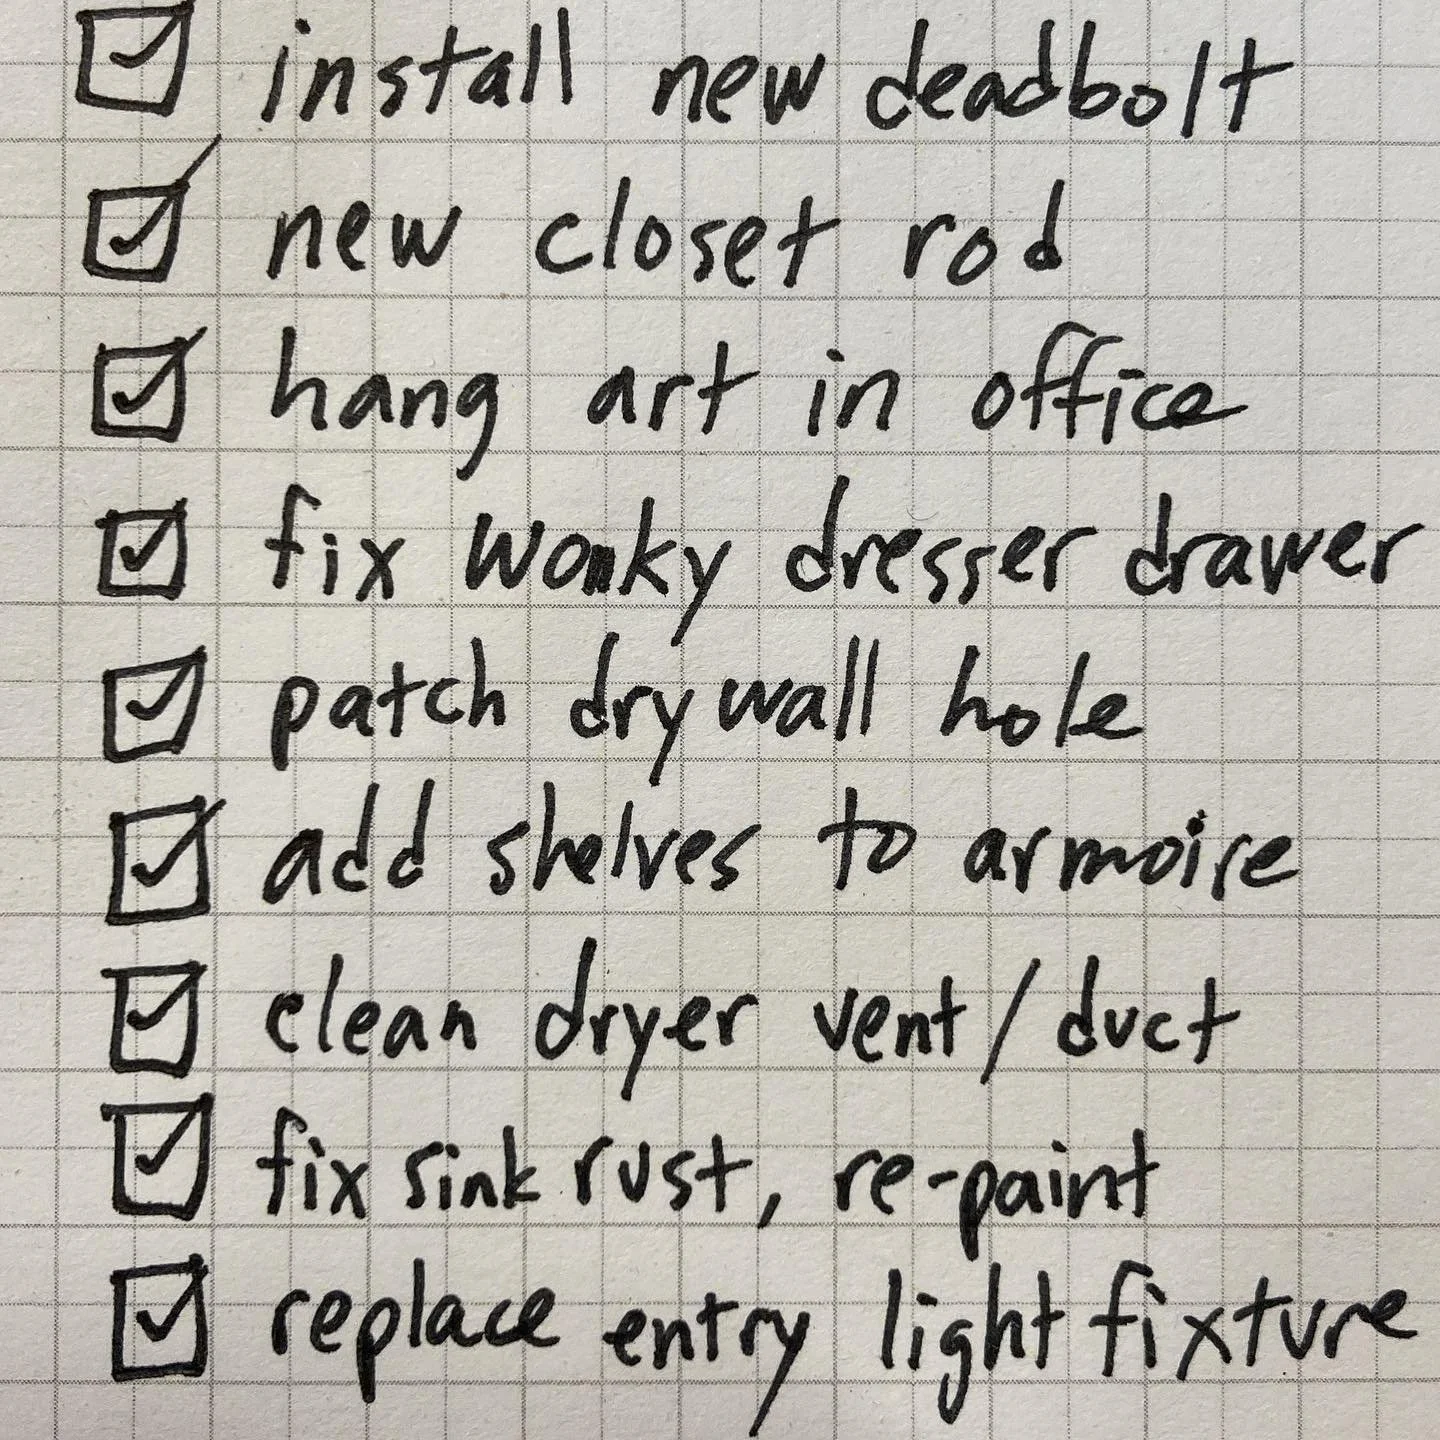 ☑ install new deadbolt
☑ new closet rod
☑ hang art in office
☑ fix wonky dresser drawer
☑ patch drywall hole
☑ add shelves to armoire
☑ clean dryer vent/duct
☑ fix sink rust, re-paint
☑ replace entry light fixture